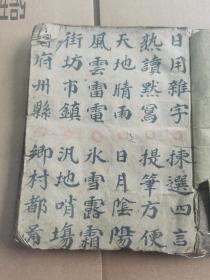 日用雜字 揀選四言
熟讀黙寫 提筆方便
天地晴雨 日月陰陽
風雲雷電 氷雪露霜
街坊市鎮 汛地哨塲
府州縣 鄉村都